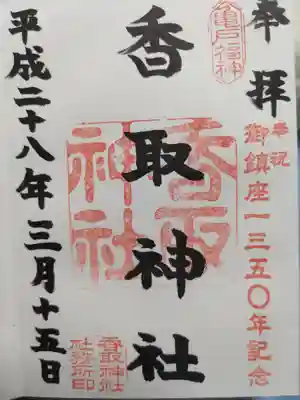 奉拝
奉祝
御鎮座一三五〇年記念
亀戸福神
香取神社
香取神社
平成二十八年三月十五日
香取神社
社務所印